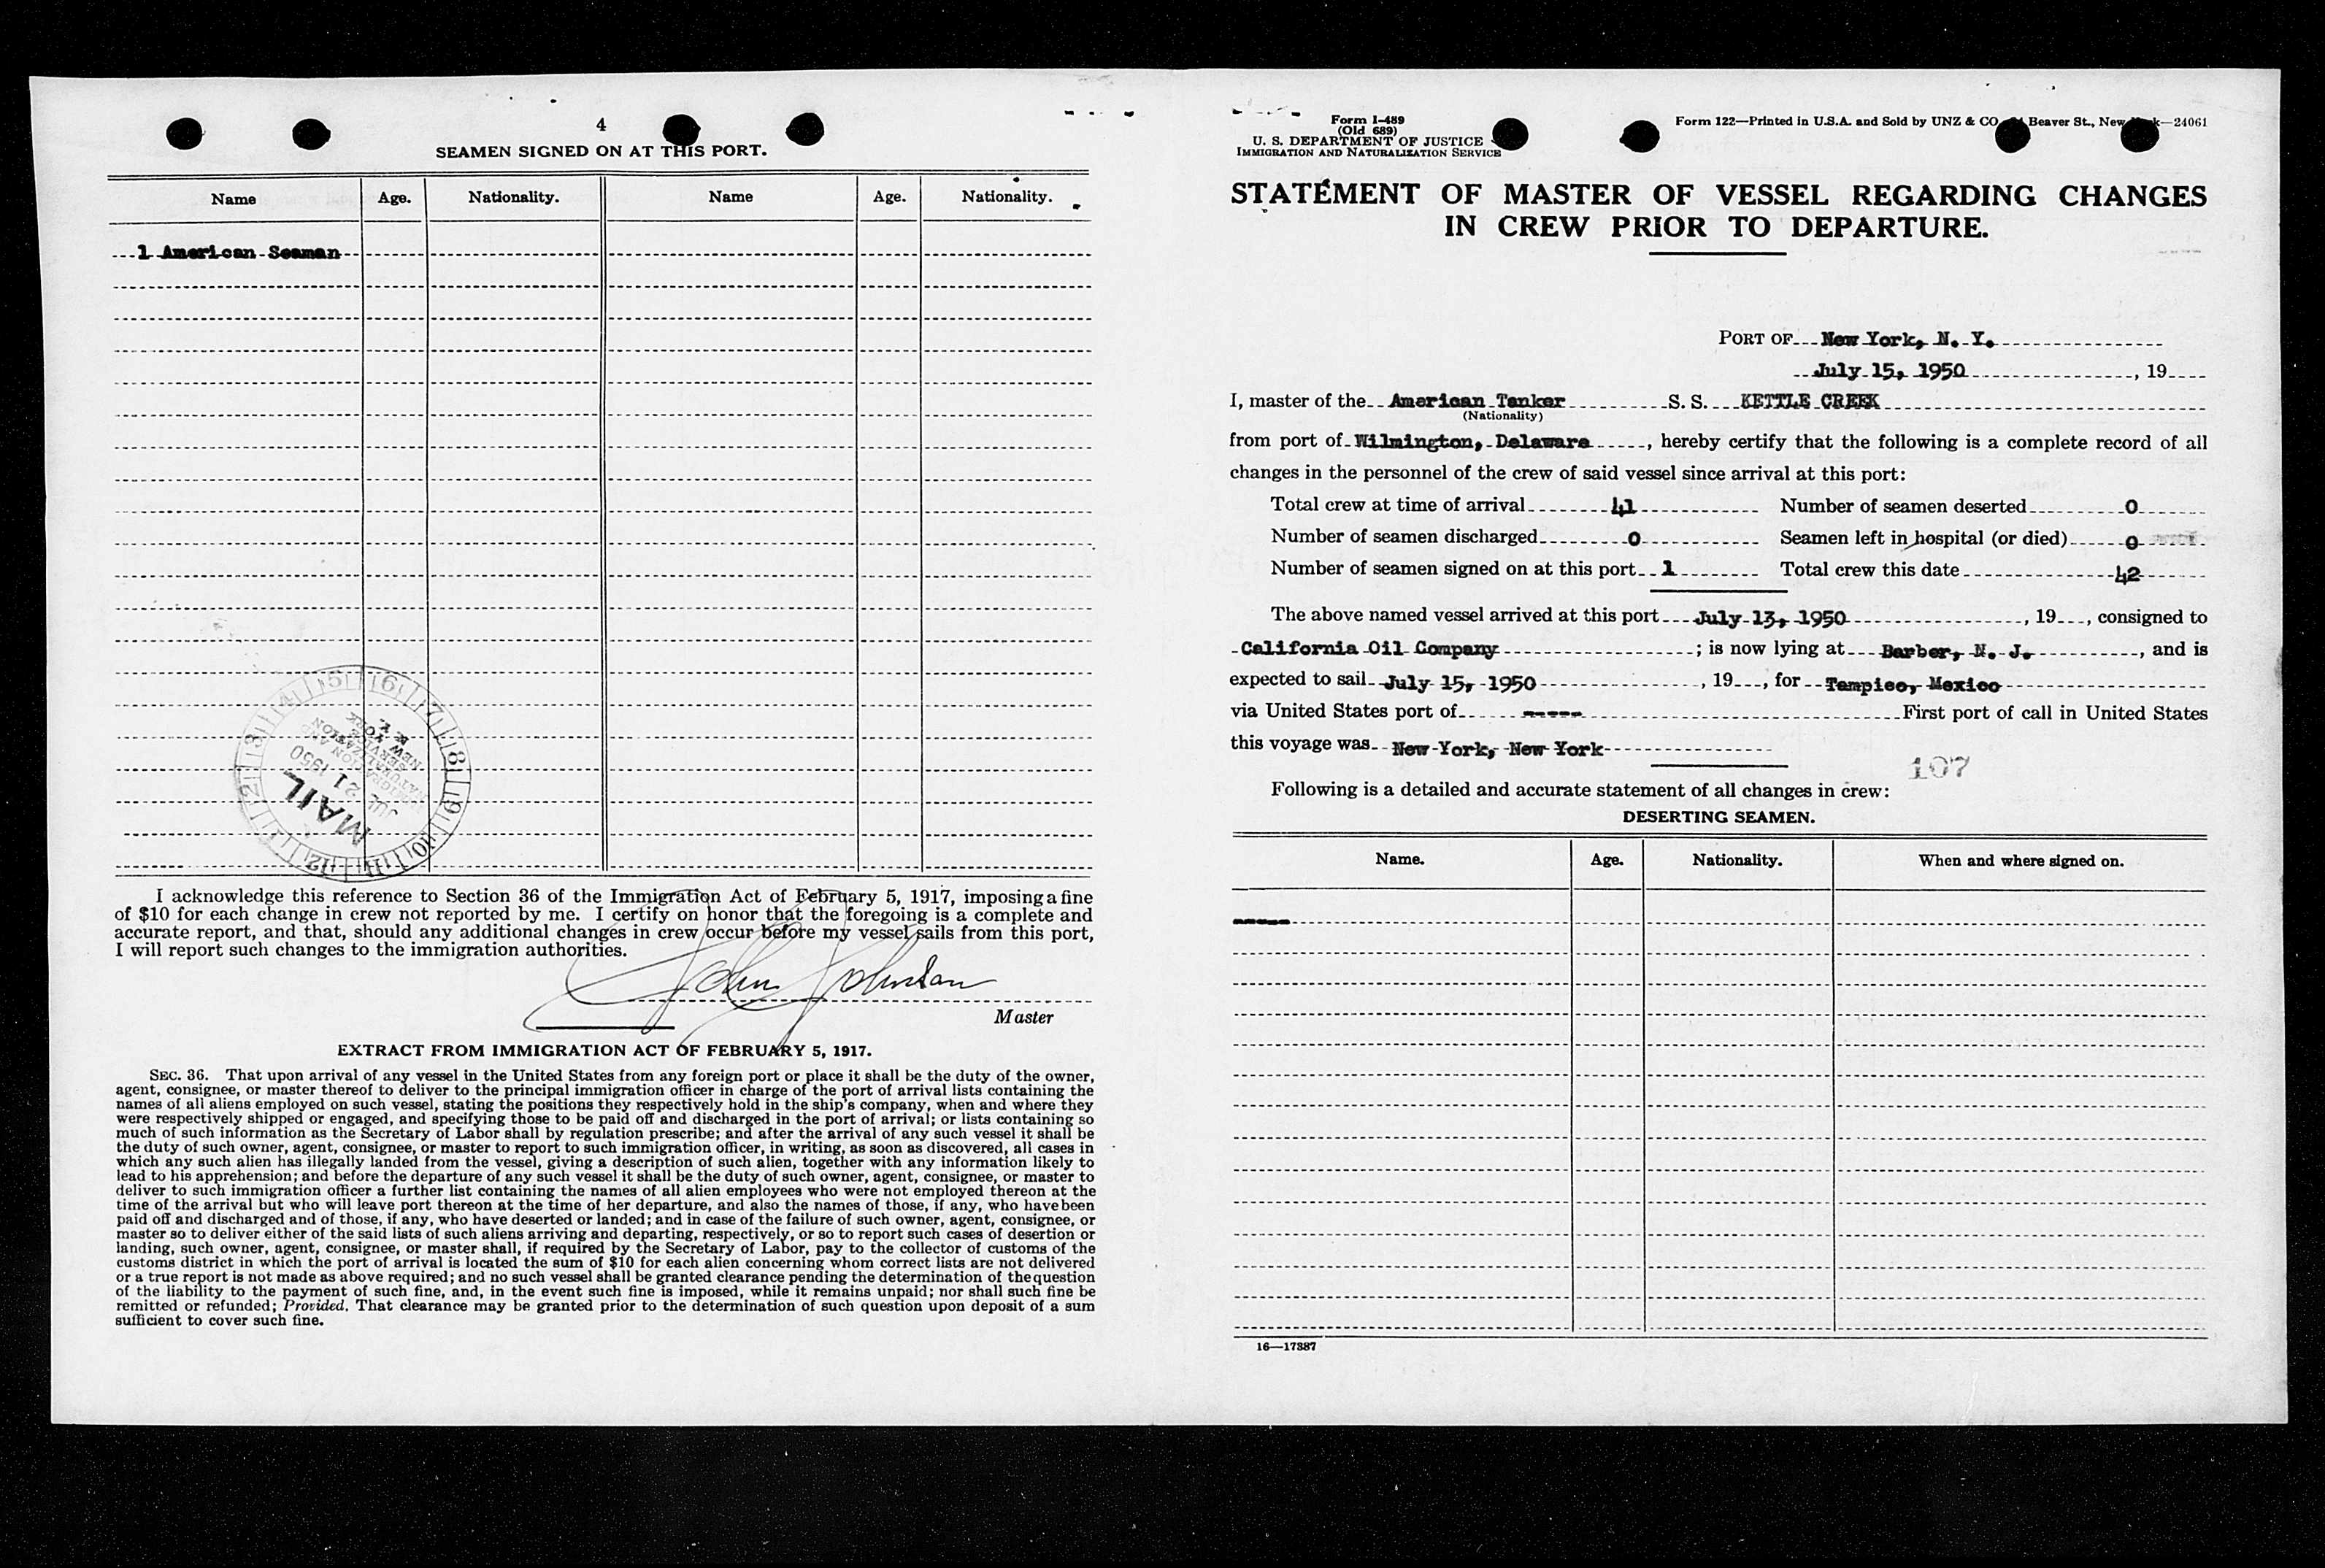 4
SEAMEN SIGNED ON AT THIS PORT.
Name Age. Nationality. Name Age. Nationality.
1 American Seaman
5 6 7 8 9 10 11 12 1 2 3 4
IMMIGRATION AND
NATURALIZATION
SERVICE
NEW YORK
N. Y.
JUL 21 1950
MAIL
I acknowledge this reference to Section 36 of the Immigration Act of February 5, 1917, imposing a fine
of $10 for each change in crew not reported by me. I certify on honor that the foregoing is a complete and
accurate report, and that, should any additional changes in crew occur before my vessel sails from this port,
I will report such changes to the immigration authorities.
John Johnson
Master
EXTRACT FROM IMMIGRATION ACT OF FEBRUARY 5, 1917.
SEC. 36. That upon arrival of any vessel in the United States from any foreign port or place it shall be the duty of the owner,
agent, consignee, or master thereof to deliver to the principal immigration officer in charge of the port of arrival lists containing the
names of all aliens employed on such vessel, stating the positions they respectively hold in the ship's company, when and where they
were respectively shipped or engaged, and specifying those to be paid off and discharged in the port of arrival; or lists containing so
much of such information as the Secretary of Labor shall by regulation prescribe; and after the arrival of any such vessel it shall be
the duty of such owner, agent, consignee, or master to report to such immigration officer, in writing, as soon as discovered, all cases in
which any such alien has illegally landed from the vessel, giving a description of such alien, together with any information likely to
lead to his apprehension; and before the departure of any such vessel it shall be the duty of such owner, agent, consignee, or master to
deliver to such immigration officer a further list containing the names of all alien employees who were not employed thereon at the
time of the arrival but who will leave port thereon at the time of her departure, and also the names of those, if any, who have been
paid off and discharged and of those, if any, who have deserted or landed; and in case of the failure of such owner, agent, consignee, or
master so to deliver either of the said lists of such aliens arriving and departing, respectively, or so to report such cases of desertion or
landing, such owner, agent, consignee, or master shall, if required by the Secretary of Labor, pay to the collector of customs of the
customs district in which the port of arrival is located the sum of $10 for each alien concerning whom correct lists are not delivered
or a true report is not made as above required; and no such vessel shall be granted clearance pending the determination of the question
of the liability to the payment of such fine, and, in the event such fine is imposed, while it remains unpaid; nor shall such fine be
remitted or refunded; Provided. That clearance may be granted prior to the determination of such question upon deposit of a sum
sufficient to cover such fine.
Form I-489
(Old 689)
U. S. DEPARTMENT OF JUSTICE
IMMIGRATION AND NATURALIZATION SERVICE
Form 122—Printed in U.S.A. and Sold by UNZ & CO. Beaver St., New k—24061
STATEMENT OF MASTER OF VESSEL REGARDING CHANGES
IN CREW PRIOR TO DEPARTURE.
PORT OF New York, N. Y.
July 15, 1950, 19
I, master of the American Tanker S. S. KETTLE CREEK
(Nationality)
from port of Wilmington, Delaware, hereby certify that the following is a complete record of all
changes in the personnel of the crew of said vessel since arrival at this port:
Total crew at time of arrival 41 Number of seamen deserted 0
Number of seamen discharged 0 Seamen left in hospital (or died) 0
Number of seamen signed on at this port 1 Total crew this date 42
The above named vessel arrived at this port July 13, 1950, 19, consigned to
California Oil Company; is now lying at Barber, N. J., and is
expected to sail July 15, 1950, 19, for Tampico, Mexico
via United States port of ----- First port of call in United States
this voyage was New York, New York
107
Following is a detailed and accurate statement of all changes in crew:
DESERTING SEAMEN.
Name. Age. Nationality. When and where signed on.
-----
16—17387